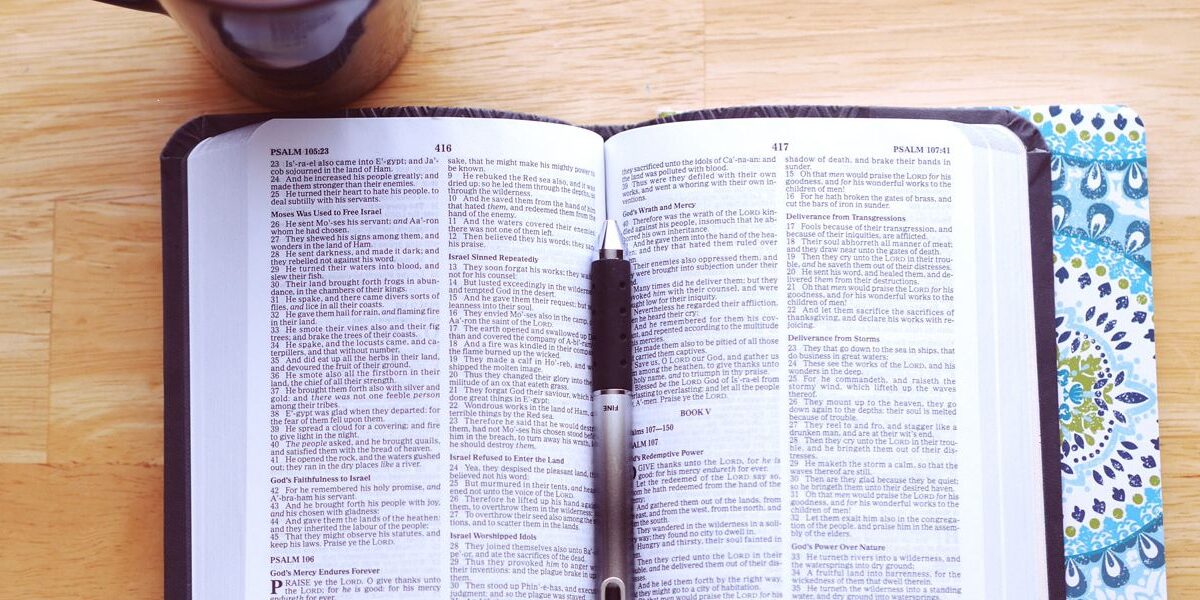 PSALM 105:23
416
23 Is'-ra-el also came into E'-gypt; and Ja'-
cob sojourned in the land of Ham.
24 And he increased his people greatly; and
made them stronger than their enemies.
25 He turned their heart to hate his people, to
deal subtilly with his servants.
Moses Was Used to Free Israel
26 He sent Mo'-ses his servant; and Aa'-ron
whom he had chosen.
27 They shewed his signs among them, and
wonders in the land of Ham.
28 He sent darkness, and made it dark; and
they rebelled not against his word.
29 He turned their waters into blood, and
slew their fish.
30 Their land brought forth frogs in abun-
dance, in the chambers of their kings.
31 He spake, and there came divers sorts of
flies, and lice in all their coasts.
32 He gave them hail for rain, and flaming fire
in their land.
33 He smote their vines also and their fig
trees; and brake the trees of their coasts.
34 He spake, and the locusts came, and ca-
terpillers, and that without number,
35 And did eat up all the herbs in their land,
and devoured the fruit of their ground.
36 He smote also all the firstborn in their
land, the chief of all their strength.
37 He brought them forth also with silver and
gold: and there was not one feeble person
among their tribes.
38 E'-gypt was glad when they departed: for
the fear of them fell upon them.
39 He spread a cloud for a covering; and fire
to give light in the night.
40 The people asked, and he brought quails,
and satisfied them with the bread of heaven.
41 He opened the rock, and the waters gushed
out; they ran in the dry places like a river.
God's Faithfulness to Israel
42 For he remembered his holy promise, and
A'-bra-ham his servant.
43 And he brought forth his people with joy,
and his chosen with gladness:
44 And gave them the lands of the heathen:
and they inherited the labour of the people;
45 That they might observe his statutes, and
keep his laws. Praise ye the LORD.
PSALM 106
God's Mercy Endures Forever
PRAISE ye the LORD. O give thanks unto
the LORD; for he is good: for his mercy
endureth for ever.
sake, that he might make his mighty power to
be known.
9 He rebuked the Red sea also, and it was
dried up: so he led them through the depths, as
through the wilderness.
10 And he saved them from the hand of him
that hated them, and redeemed them from the
hand of the enemy.
11 And the waters covered their enemies:
there was not one of them left.
12 Then believed they his words; they sang
his praise.
Israel Sinned Repeatedly
13 They soon forgat his works; they waited
not for his counsel:
14 But lusted exceedingly in the wilderness,
and tempted God in the desert.
15 And he gave them their request; but sent
leanness into their soul.
16 They envied Mo'-ses also in the camp, and
Aa'-ron the saint of the LORD.
17 The earth opened and swallowed up
than and covered the company of A-bi'-
18 And a fire was kindled in their company;
the flame burned up the wicked.
19 They made a calf in Ho'-reb, and
shipped the molten image.
20 Thus they changed their glory into the
militude of an ox that eateth grass.
21 They forgat God their saviour, which had
done great things in E'-gypt;
22 Wondrous works in the land of Ham, and
terrible things by the Red sea.
23 Therefore he said that he would destroy
them, had not Mo'-ses his chosen stood before
him in the breach, to turn away his wrath, lest
he should destroy them.
Israel Refused to Enter the Land
24 Yea, they despised the pleasant land, they
believed not his word:
25 But murmured in their tents, and
ened not unto the voice of the LORD.
26 Therefore he lifted up his hand against
them, to overthrow them in the wilderness:
27 To overthrow their seed also among the
tions, and to scatter them in the lands.
Israel Worshipped Idols
28 They joined themselves also unto Ba'-
pe'-or, and ate the sacrifices of the dead.
29 Thus they provoked him to anger with
their inventions: and the plague brake in upon
them.
30 Then stood up Phin'-e-has, and executed
judgment: and so the plague was stayed.
FINE
417
PSALM 107:41
they sacrificed unto the idols of Ca'-na-an: and
the land was polluted with blood.
39 Thus were they defiled with their own
works, and went a whoring with their own in-
ventions.
God's Wrath and Mercy
40 Therefore was the wrath of the LORD kin-
dled against his people, insomuch that he ab-
horred his own inheritance.
And he gave them into the hand of the hea-
then; and they that hated them ruled over
Their enemies also oppressed them, and
were brought into subjection under their
Many times did he deliver them; but they
provoked him with their counsel, and were
brought low for their iniquity.
Nevertheless he regarded their affliction,
when he heard their cry:
And he remembered for them his cov-
enant, and repented according to the multitude
his mercies.
He made them also to be pitied of all those
carried them captives.
Save us, O LORD our God, and gather us
among the heathen, to give thanks unto
holy name, and to triumph in thy praise.
Blessed be the LORD God of Is'-ra-el from
everlasting to everlasting: and let all the people
A'-men. Praise ye the LORD.
BOOK V
Psalms 107—150
PSALM 107
God's Redemptive Power
O GIVE thanks unto the LORD, for he is
good: for his mercy endureth for ever.
Let the redeemed of the LORD say so,
whom he hath redeemed from the hand of the
enemy;
And gathered them out of the lands, from
east, and from the west, from the north, and
from the south.
They wandered in the wilderness in a soli-
way; they found no city to dwell in.
Hungry and thirsty, their soul fainted in
Then they cried unto the LORD in their
trouble, and he delivered them out of their dis-
tresses.
And he led them forth by the right way,
that they might go to a city of habitation.
Oh that men would praise the LORD for his
shadow of death, and brake their bands in
sunder.
15 Oh that men would praise the LORD for his
goodness, and for his wonderful works to the
children of men!
16 For he hath broken the gates of brass, and
cut the bars of iron in sunder.
Deliverance from Transgressions
17 Fools because of their transgression, and
because of their iniquities, are afflicted.
18 Their soul abhorreth all manner of meat;
and they draw near unto the gates of death.
19 Then they cry unto the LORD in their trou-
ble, and he saveth them out of their distresses.
20 He sent his word, and healed them, and de-
livered them from their destructions.
21 Oh that men would praise the LORD for his
goodness, and for his wonderful works to the
children of men!
22 And let them sacrifice the sacrifices of
thanksgiving, and declare his works with re-
joicing.
Deliverance from Storms
23 They that go down to the sea in ships, that
do business in great waters;
24 These see the works of the LORD, and his
wonders in the deep.
25 For he commandeth, and raiseth the
stormy wind, which lifteth up the waves
thereof.
26 They mount up to the heaven, they go
down again to the depths: their soul is melted
because of trouble.
27 They reel to and fro, and stagger like a
drunken man, and are at their wit's end.
28 Then they cry unto the LORD in their trou-
ble, and he bringeth them out of their dis-
tresses.
29 He maketh the storm a calm, so that the
waves thereof are still.
30 Then are they glad because they be quiet;
so he bringeth them unto their desired haven.
31 Oh that men would praise the LORD for his
goodness, and for his wonderful works to the
children of men!
32 Let them exalt him also in the congrega-
tion of the people, and praise him in the assem-
bly of the elders.
God's Power Over Nature
33 He turneth rivers into a wilderness, and
the watersprings into dry ground;
34 A fruitful land into barrenness, for the
wickedness of them that dwell therein.
35 He turneth the wilderness into a standing
water, and dry ground into watersprings.